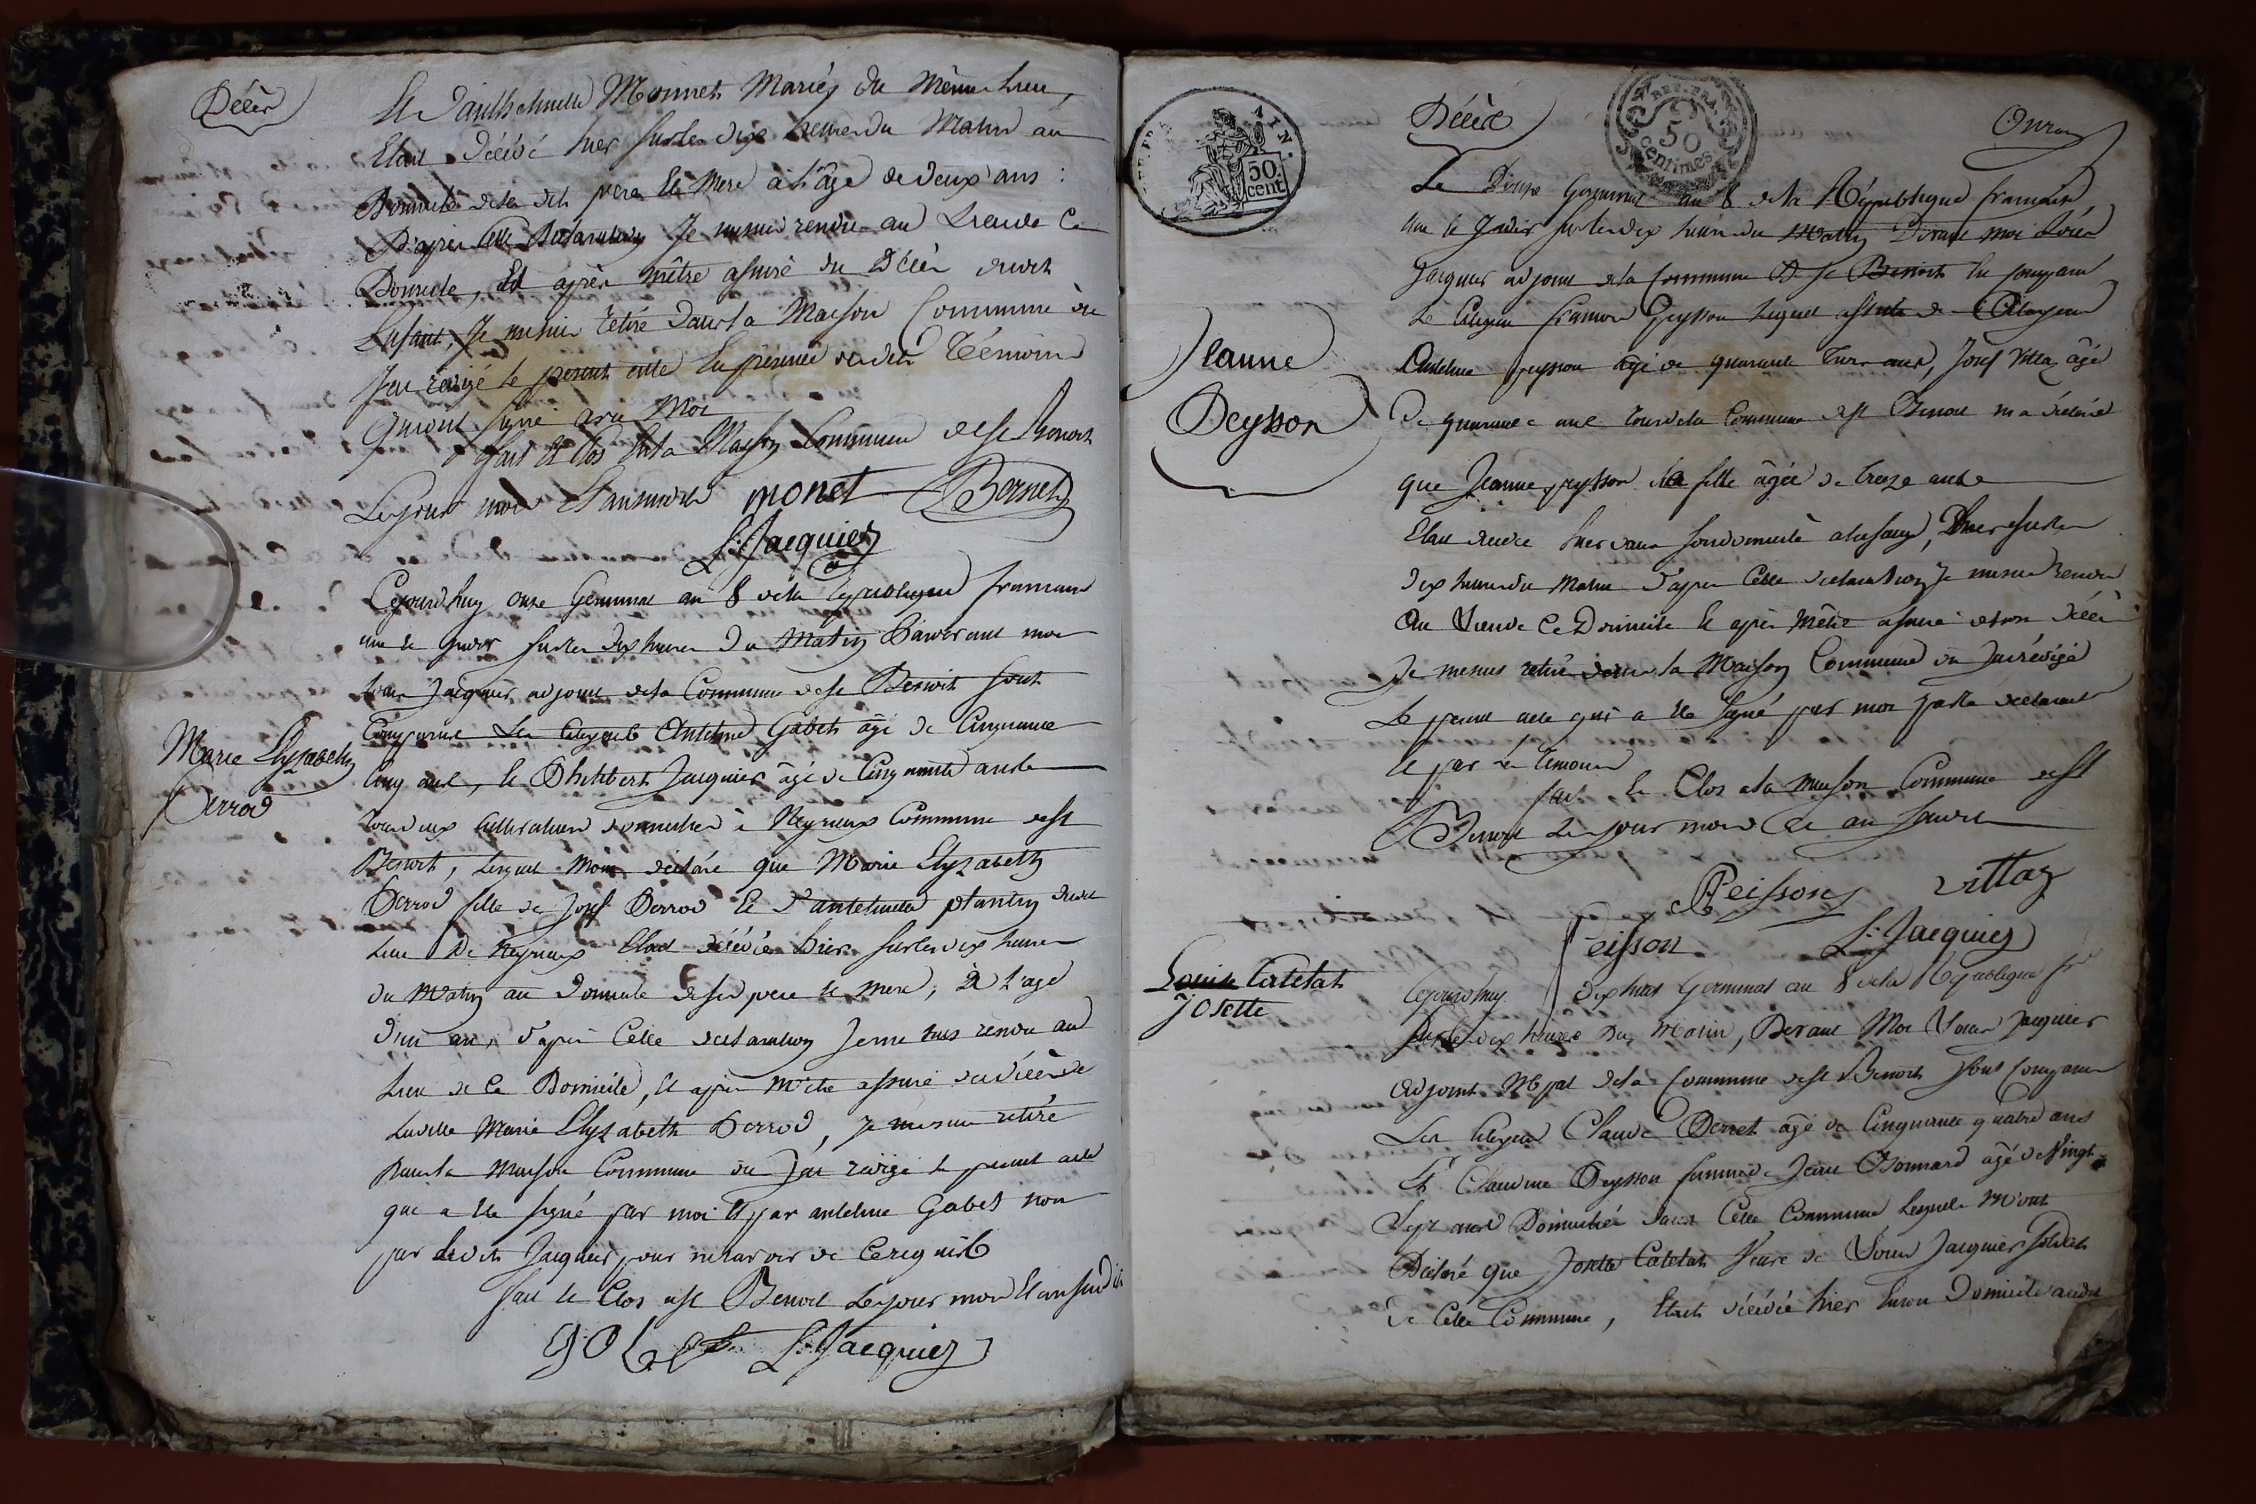 Décès
Et D'anthelmette Monnet Mariés du Même Lieu,
Etait Décédé hier sur les dix heures du Matin au
Domicile de ses dits pere et Mere à l'âge de deux ans :
D'après cette Declaration Je me suis rendu au Lieu de Ce
Domicile, Et après m'être assuré du Décès dudit
Enfant, Je me suis retiré dans la Maison Commune où
J'ai rédigé le présent acte En présence desdits Témoins
Qui ont signé avec Moi
fait et Clos En la Maison Commune de St Benoit
Les jour mois Et an susdits monet Bornet
L: Jacquier
Cejourd'huy onze Germinal an 8 de la République françoise
une et indiv sur les dix heures du Matin Pardevant moi
Louis Jacquier adjoint de la Commune de St Benoit sont
Comparus Les Citoyens Antelme Gabet âgé de Cinquante
Cinq ans, et Philibert Jacquier âgé de Cinquante ans
tous deux Cultivateurs domiciliés à Neyrieux Commune de St
Benoit, Lesquels M'ont déclaré que Marie Elyzabeth
Marie Elyzabeth
Perrod
Perrod fille de Josef Perrod Et D'antelmette plantin dudit
Lieu De Neyrieux Etait décédée hier sur les dix heures
du Matin au Domicile de ses pere et mere, à L'age
d'un an, d'après Cette declaration Je me suis rendu au
Lieu de Ce Domicile, Et après m'être assuré du décès de
Ladite Marie Elyzabeth Perrod, Je me suis retiré
Dans la Maison Commune où J'ai rédigé le present acte
qui a été signé par moi Et par antelme Gabet non
par Ledit Jacquier pour ne savoir de Ce requis
fait et Clos a St Benoit Les jour mois Et an susdits
L: Jacquier
REP. FRA. AIN.
50. cent
Décès
REP. FRA.
50 centimes
Onze
Le Douze Germinal an 8 de la République française
une et Indiv sur les dix heures du Matin Devant moi Louis
Jacquier adjoint de la Commune De St Benoit Est Comparu
Le Citoyen françois Peysson Lequel assisté des Citoyens
Antelme Peysson âgé de quarante trois ans, Josef Vittaz âgé
Jeanne
Peysson
De quarante ans tous de la Commune de St Benoit m'a déclaré
que Jeanne peysson sa fille âgée de treize ans
Etait decedée hier dans son domicile, hier sur les
dix heures du Matin D'après Cette declaration Je me suis rendu
Au Lieu de Ce Domicile Et après M'être assuré de son décès
Je me suis retiré dans la Maison Commune où J'ai rédigé
Le présent acte qui a été signé par moi par le declarant
Et par les temoins
fait Et Clos a la maison Commune de St
Benoit Les jour mois Et an susdits
Peisson vittaz
Peisson L: Jacquier
Louise Catelat
Josette
Cejourd'huy Dix huit Germinal an 8 de la République fse
sur les dix heures Du Matin, Devant Moi Louis Jacquier
Adjoint Mpal de la Commune de St Benoit sont Comparus
Les Citoyens Claude Perret âgé de Cinquante quatre ans
Et Claudine Peysson femme de Jean Bonnard âgé de Vingt
Sept ans Domiciliés dans Cette Commune Lesquels M'ont
Déclaré que Josette Catelat Veuve de Louis Jacquier
de Cette Commune, Etait décédée hier En son Domicile audit